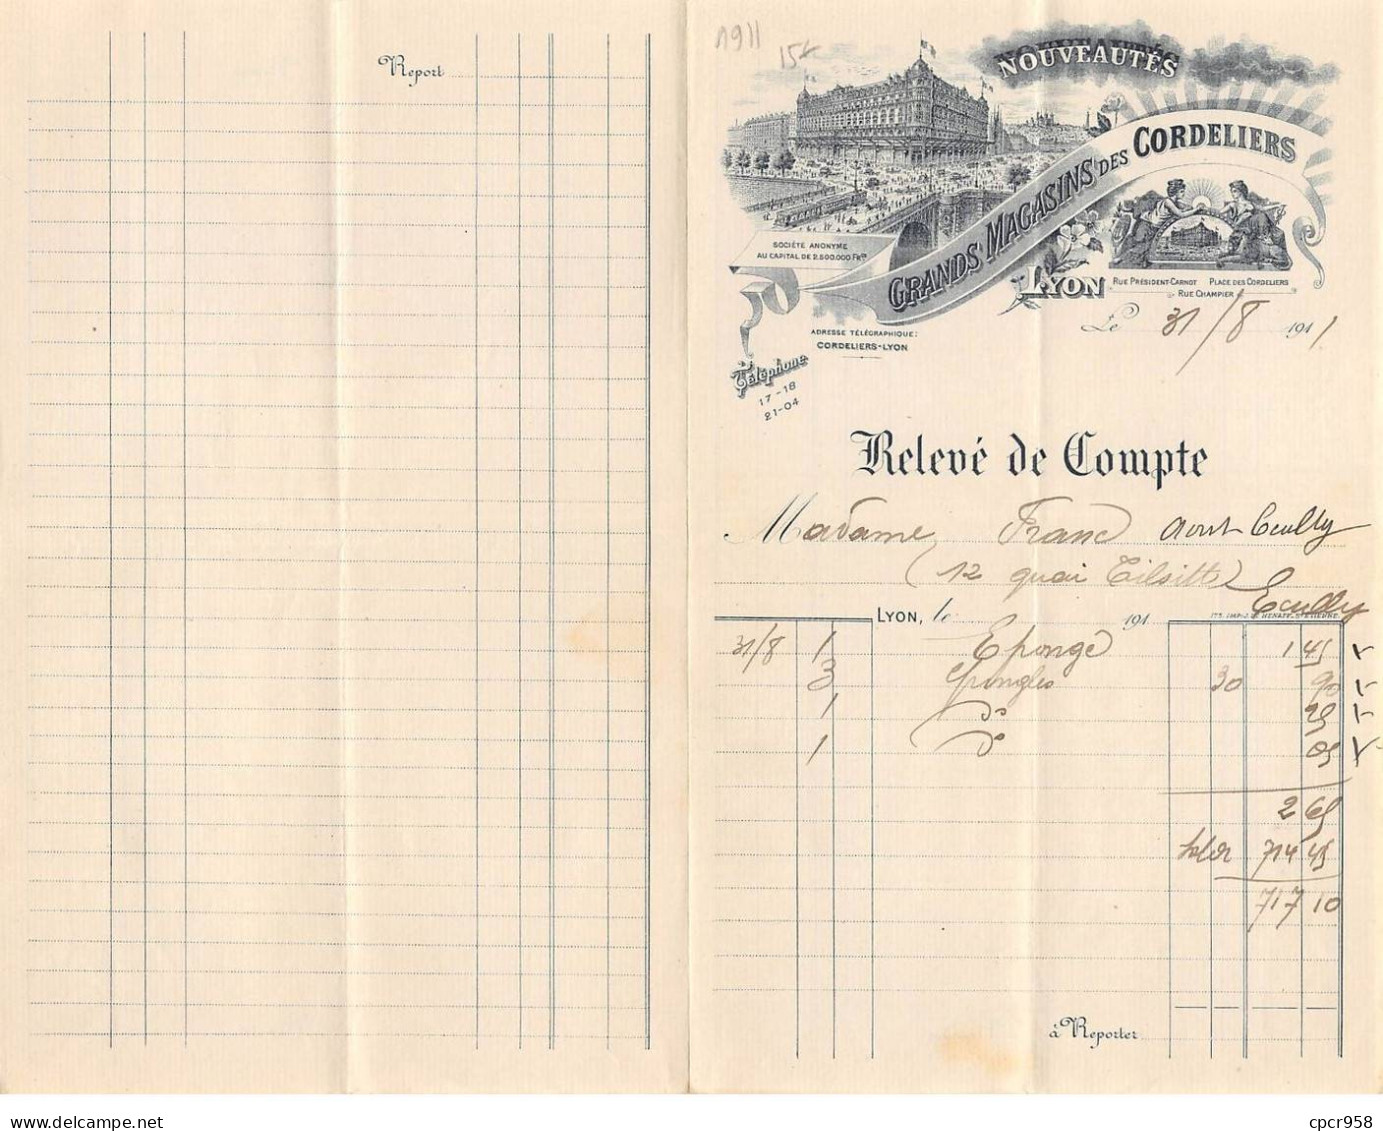 Report
1911
15f
NOUVEAUTÉS
GRANDS MAGASINS DES CORDELIERS
LYON
SOCIÉTÉ ANONYME
AU CAPITAL DE 2.500.000 FRS
RUE PRÉSIDENT-CARNOT PLACE DES CORDELIERS
RUE CHAMPIER
ADRESSE TÉLÉGRAPHIQUE:
CORDELIERS-LYON
Téléphone
17-18
21-04
Le 31/8 1911
Relevé de Compte
Madame Franc Aout Ecully
(12 quai Tilsitt)
Ecully
LYON, le 191
31/8 1 Eponge 1 45
3 Epingles 30 90
1 do 25
1 do 05
2 65
714 45
717 10
à Reporter
cpcr958